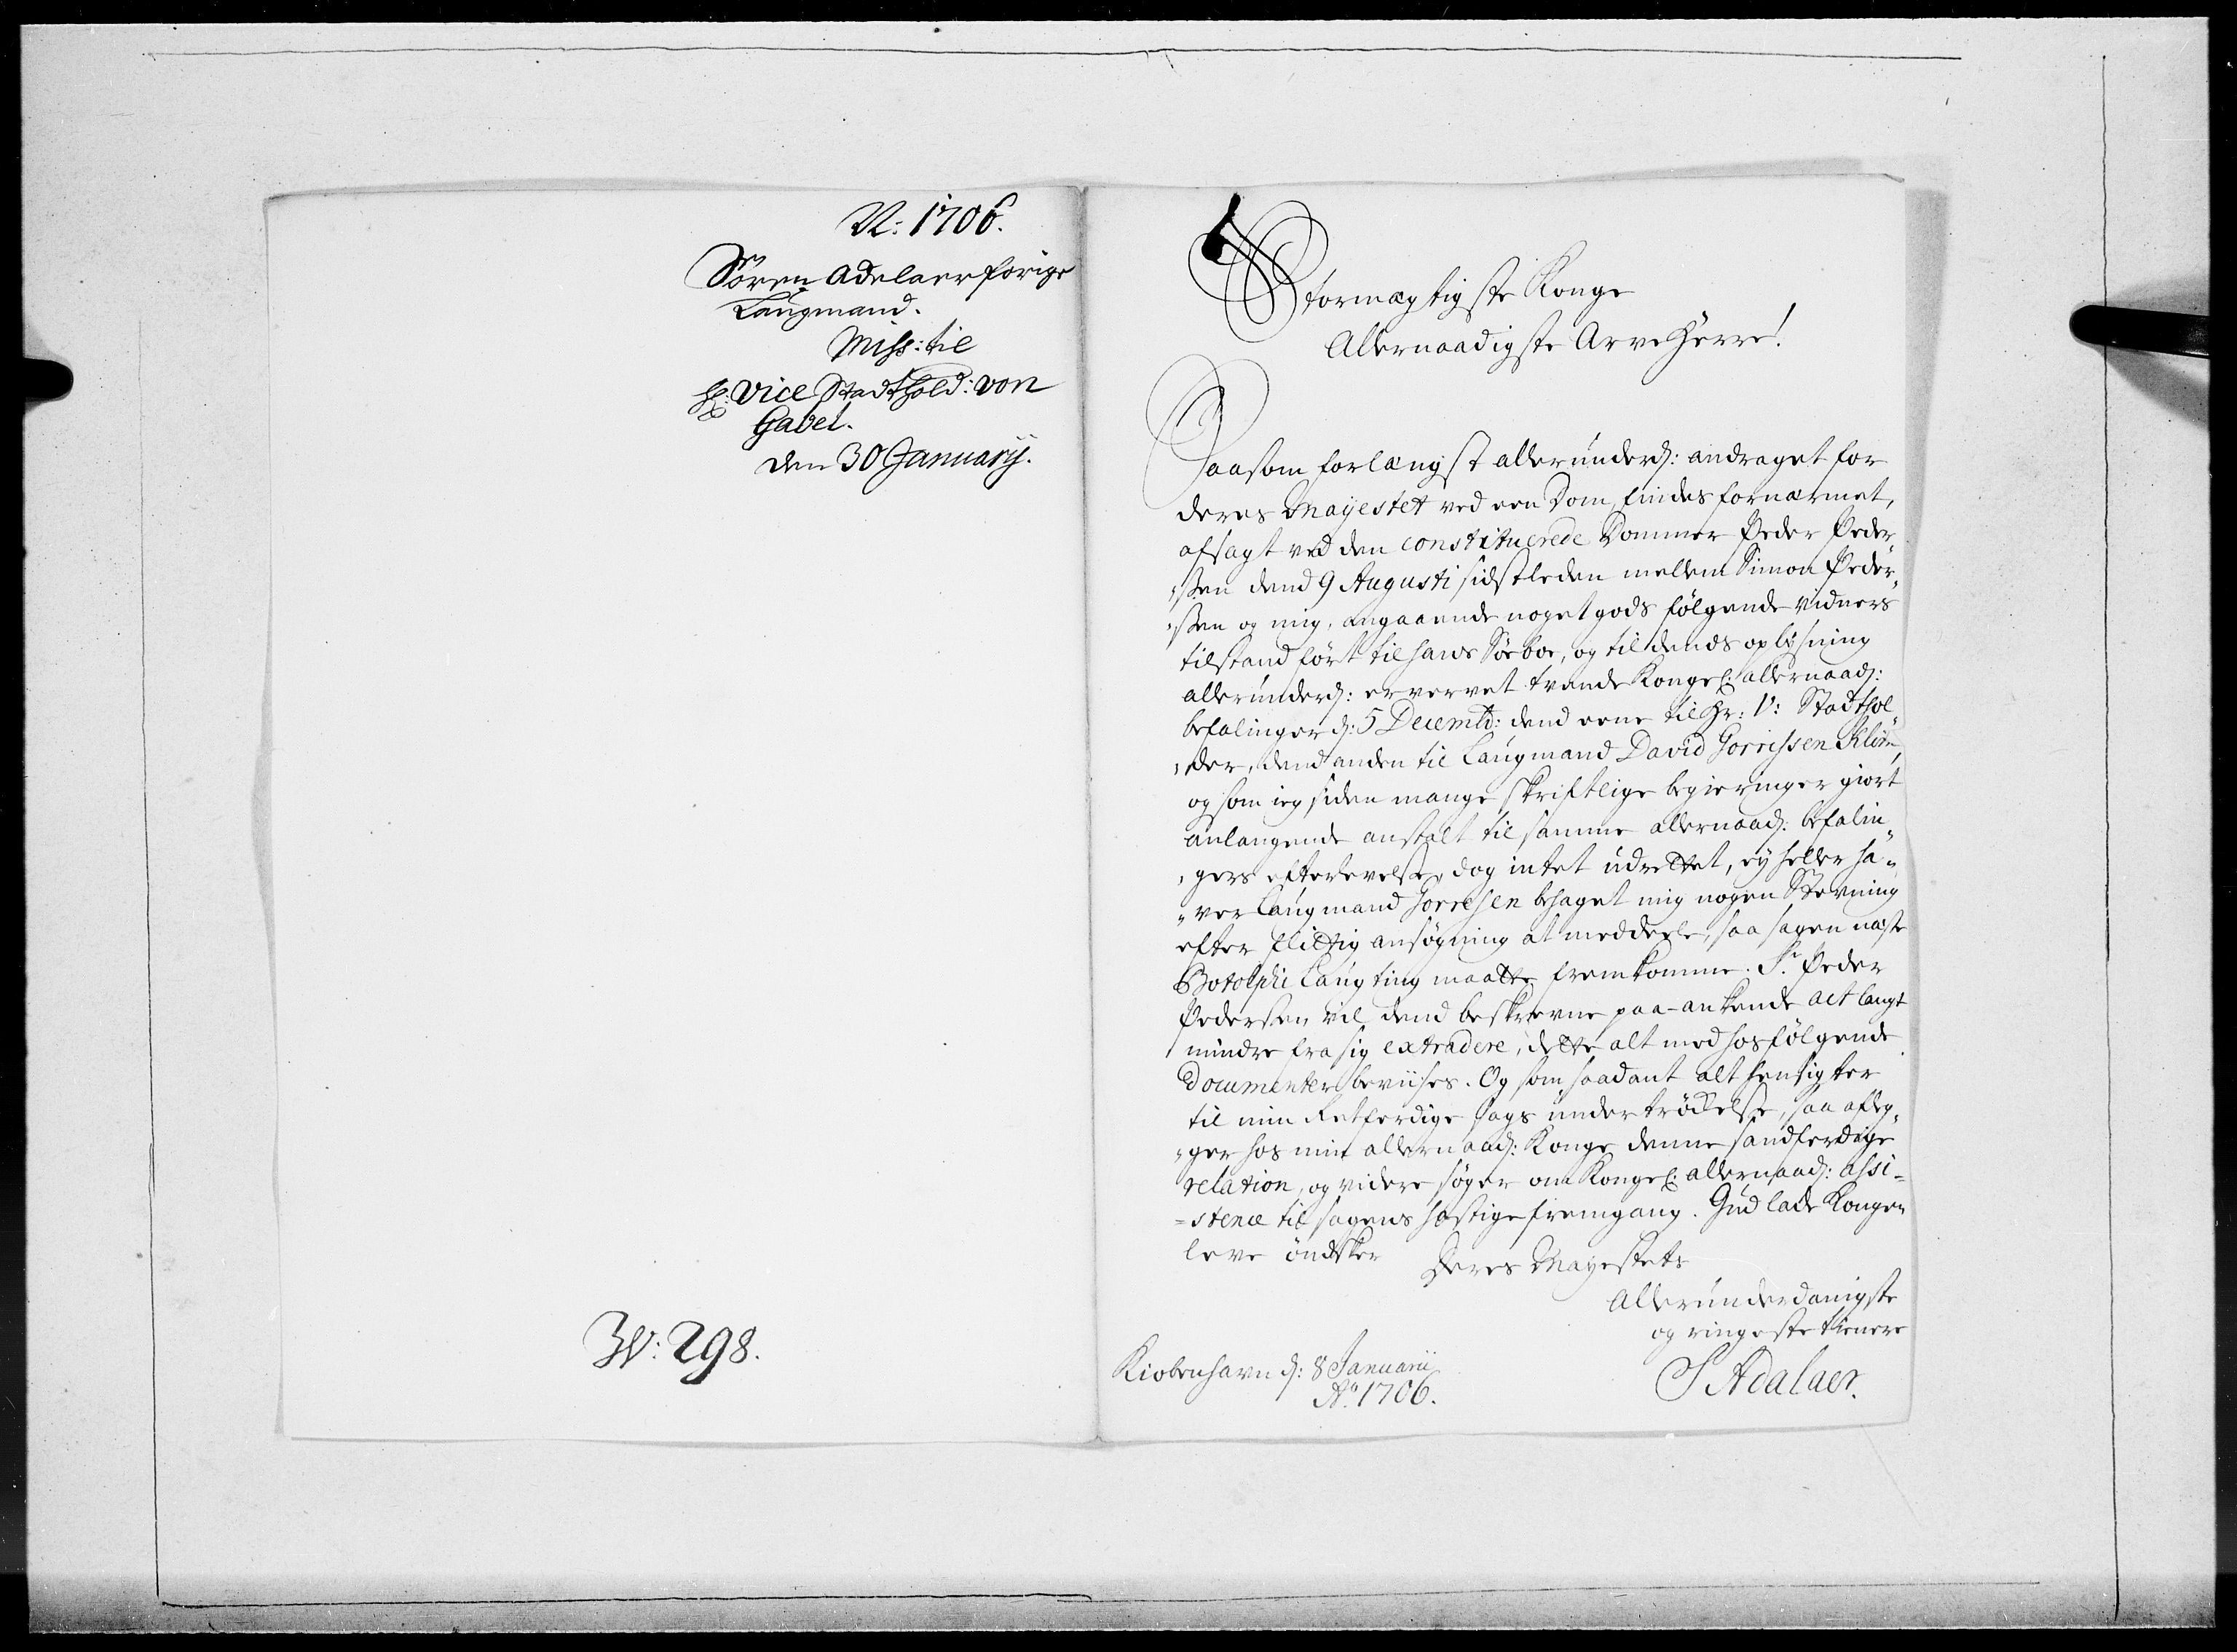 N: 1706.
Sören Adelaer forige
Laugmand.
Miss: til
H: Vice Stadthold: von
Gabel.
den 30 Januarij.
No: 298.
Stormægtigste Konge
Allernaadigste Arve Herre!
Saasom forlængst allerunderd: andraget for
deres Mayestet ved een Dom findes fornærmet,
afsagt ved den constituerede Dommer Peder Peder„
„sen dend 9 Augusti sidstleden mellem Simon Peder„
„sen og mig, angaaende noget gods følgende vidners
tilstand ført til hans Søeboe, og til dends oplysning
allerunderd: ervervet tvende Kongel: allernaad:
befalinger d: 5 Decembr: dend eene til Hr: V: Stadthol„
„der, dend anden til Laugmand David Gorrissen Klim,
og som ieg siden mange skriftlige begieringer giort
anlangende anstalt til samme allernaad: befalin„
„gers efterlevelse, dog intet udrettet, ey heller ha„
„ver Laugmand Gorrissen behaget mig nogen Stevning
efter flittig ansøgning at meddeele, saa sagen næste
Botolphi Laugting maatte fremkomme. Sr. Peder
Pedersen vil dend beskrevne paa-ankende act langt
mindre fra sig extradere, dette alt med hosfølgende
Documenter beviises. Og som saadant alt hensigter
til min Retferdige sags undertrøckelse, saa aflæg„
„ger hos min allernaad: Konge denne sandferdige
relation, og videre søger om Kongel: allernaad: assi=
=stence til sagens hastige fremgang. Gud lade Kongen
leve öndsker
Deres Mayestets
Allerunderdanigste
og ringeste tienere
S Adalaer.
Kiøbenhavn d: 8 Januarii
Ao. 1706.